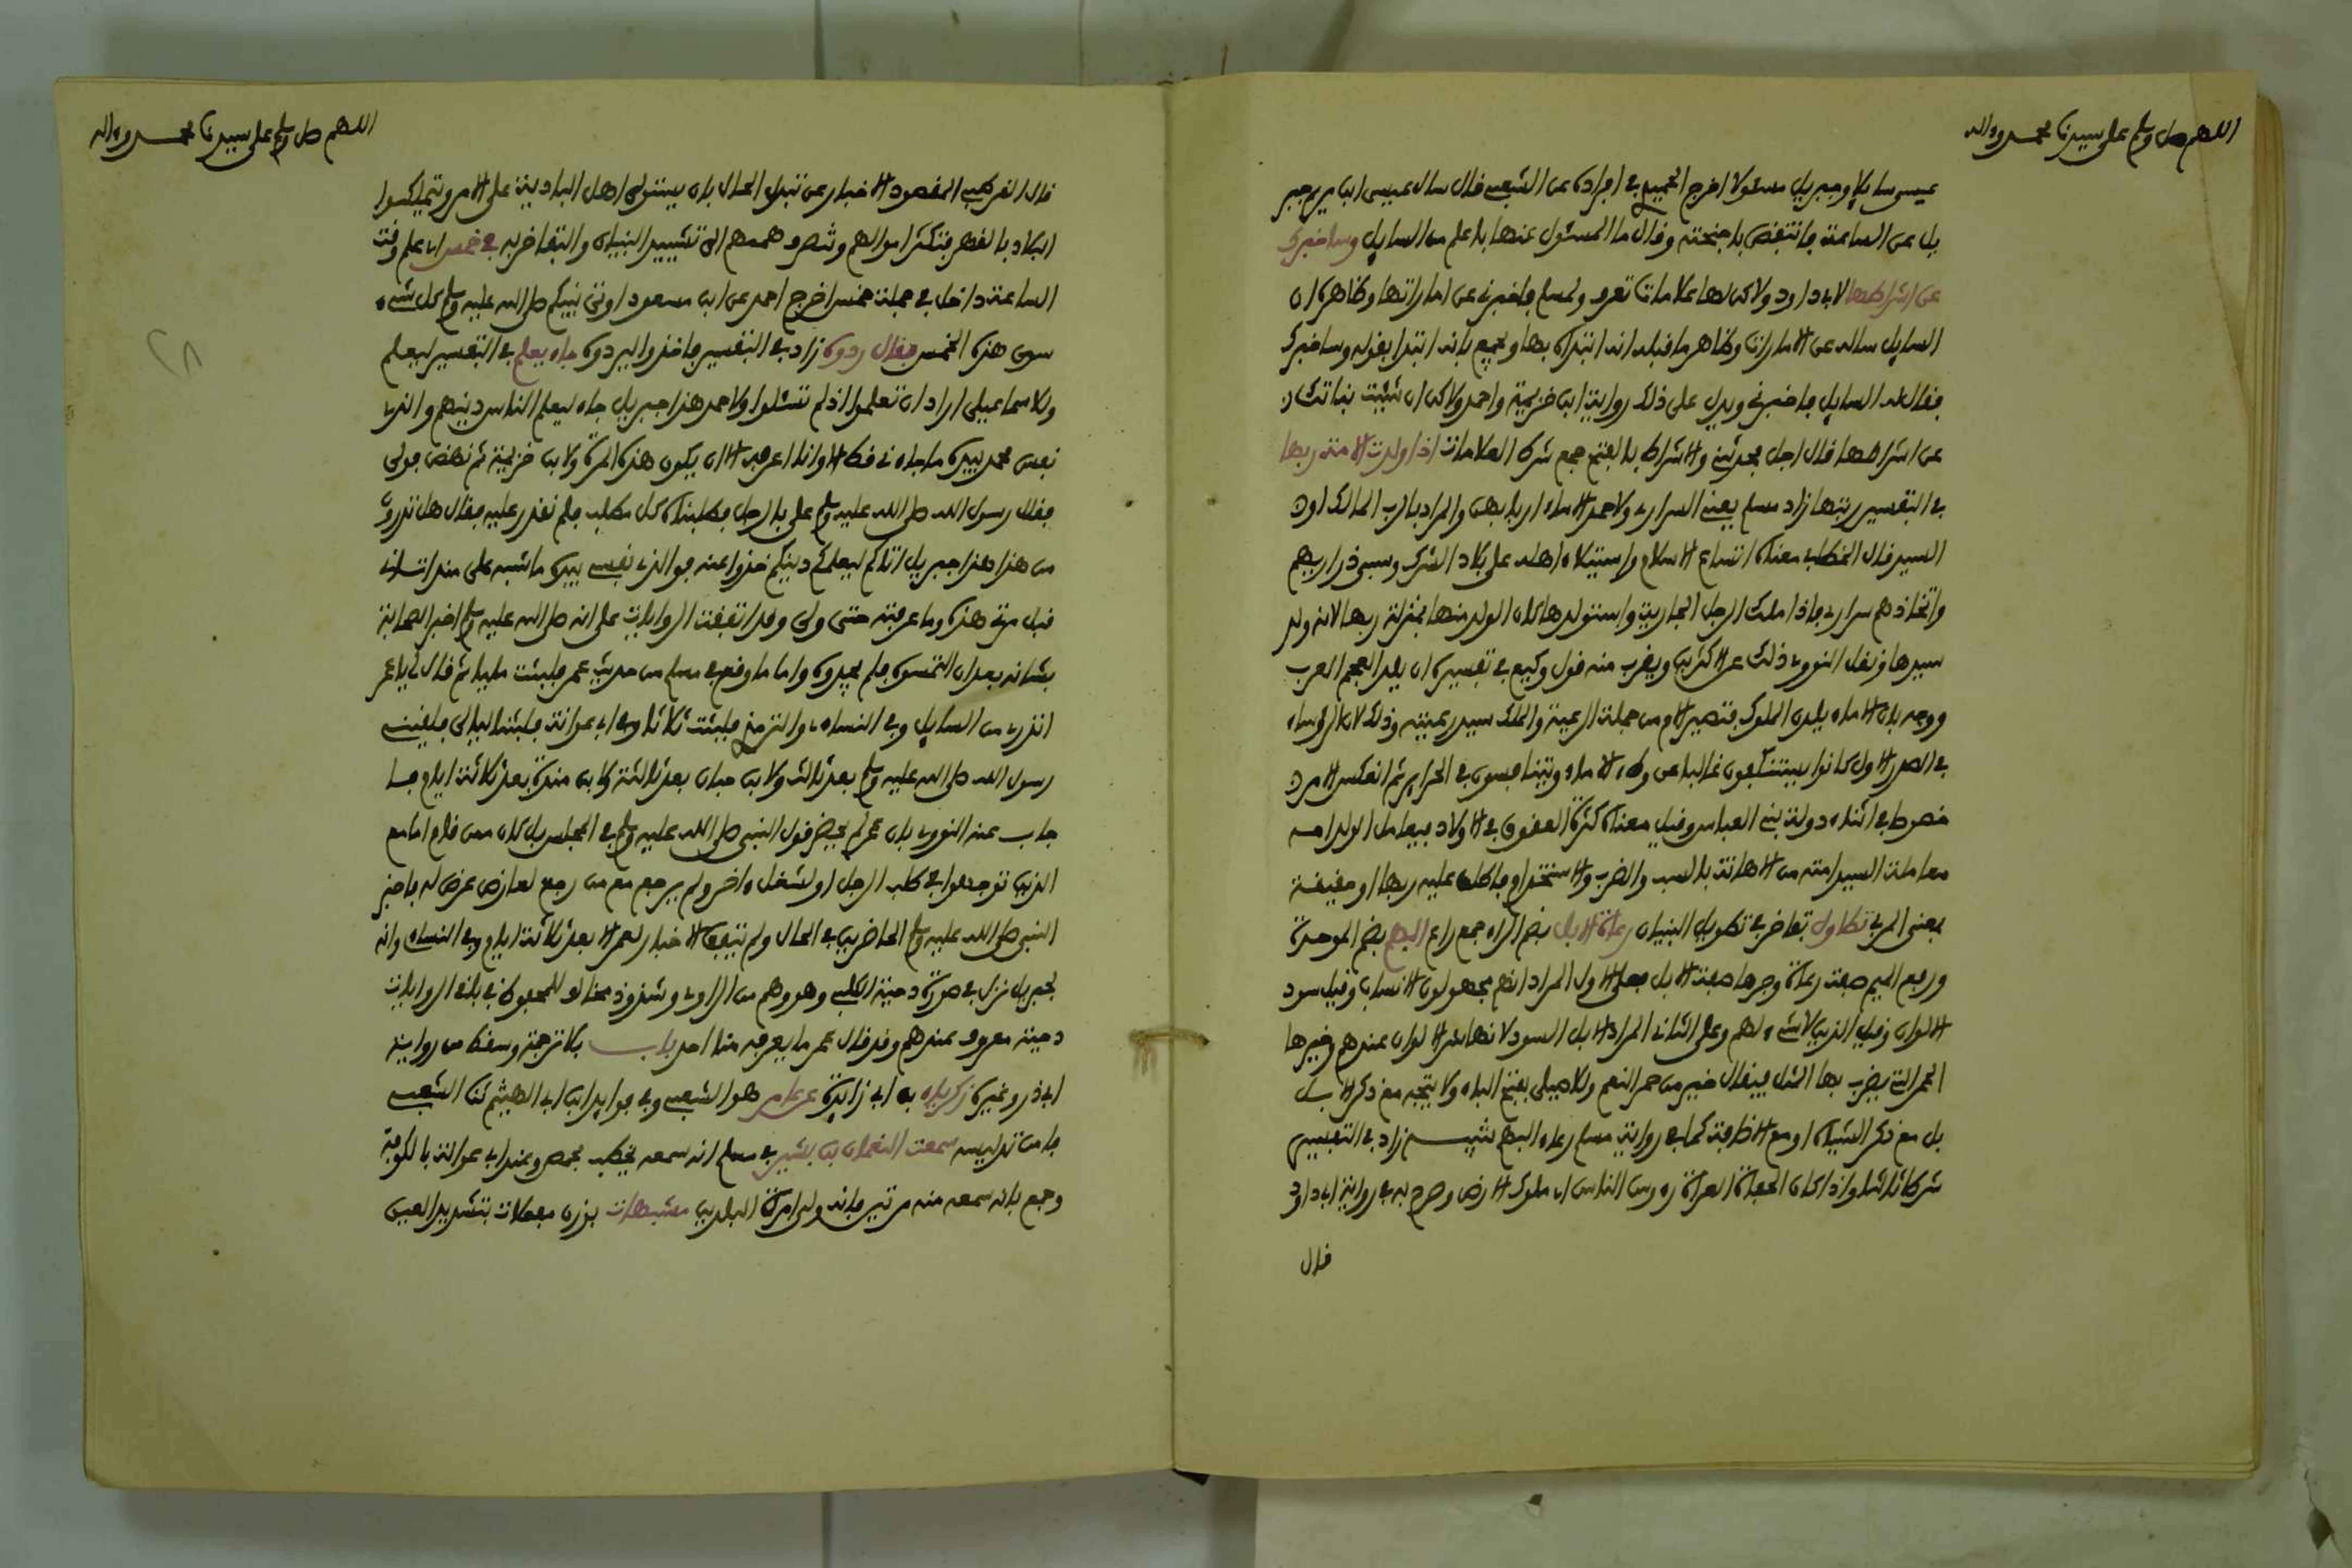 اللهم صل وسلم على سيدنا محمد وءاله
عيسى سايلا وجبريل مسئولا اخرج الحميدي في افراده عن الشعبي قال سال عيسى ابن مريم جبر
يل عن الساعة فانتفض باجنحته وقال ما المسئول عنها باعلم من السايل وساخبرك
عن اشراطها لابي داود ولاكن لها علامات تعرف ولمسلم فاخبرني عن اماراتها وظاهره ان
السايل ساله عن الامارات وظاهر ما قبله انه ابتداه بها ويجمع بانه ابتدا بقوله وساخبرك
فقال له السايل فاخبرني ويدل على ذلك رواية ابن خزيمة واحمد ولاكن ان شئت نباتك
عن اشراطها قال اجل فحدثني والاشراط بالفتح جمع شرط العلامات اذا ولدت الامة ربها
في التفسير ربتها زاد مسلم يعني السراري ولاحمد الاماء اربابهن والمراد بالرب المالك او
السيد قال الخطابي معناه اتساع الاسلام واستيلاء اهله على بلاد الشرك وسبي ذراريهم
واتخاذهم سراري فاذا ملك الرجل الجارية واستولدها كان الولد منها بمنزلة ربها لانه ولد
سيدها ونقل النووي ذلك عن الاكثرين ويقرب منه قول وكيع في تفسيره ان يلد العجم العرب
ووجه بان الاماء يلدن الملوك فتصير الام من جملة الرعية والملك سيد رعيته وذلك لان الرؤساء
في الصدر الاول كانوا يستنكفون غالبا عن وطء الاماء ويتنافسون في الحراير ثم انعكس الامر
خصوصا في اثناء دولة بني العباس وقيل معناه كثرة العقوق في الاولاد فيعامل الولد امه
معاملة السيد امته من الاهانة بالسب والضرب والاستخدام فاطلق عليه ربها او حقيقة
بمعنى المربي تطاول تفاخر في تطويل البنيان رعاة الابل بضم الراء جمع راع البهم بضم الموحدة
ورفع الميم صفة رعاة وجرها صفة الابل فعلى الاول المراد انهم مجهولون الانساب وقيل سود
الالوان وقيل الذين لا شيء لهم وعلى الثاني المراد الابل السود لانها شر الالوان عندهم وخيرها
الحمر التي يضرب بها المثل فيقال خير من حمر النعم وللاصيلي بفتح الباء ولا يتجه مع ذكر الابل
بل مع ذكر الشياه او مع الاضافة كما في رواية مسلم رعاء البهم تنبيه زاد في التفسير
شرطا ثالثا واذا كان الحفاة العراة رءوس الناس اي ملوك الارض وصرح به في رواية ابي داود
قال
اللهم صل وسلم على سيدنا محمد وءاله
قال القرطبي المقصود الاخبار عن تبدل الحال بان يستولي اهل البادية على الامر ويتملكوا
البلاد بالقهر فتكثر اموالهم وتنصرف هممهم الى تشييد البنيان والتفاخر به في خمس اي علم وقت
الساعة داخل في جملة خمس اخرج احمد عن ابن مسعود اوتي نبيكم صلى الله عليه وسلم كل شيء
سوى هذه الخمس فقال ردوه زاد في التفسير فاخذوا ليردوه جاء يعلم في التفسير ليعلم
وللاسماعيلي اراد ان تعلموا اذ لم تسئلوا ولاحمد هذا جبريل جاء ليعلم الناس دينهم والذي
نفس محمد بيده ما جاءني قط الا وانا اعرفه الا ان يكون هذه المرة ولابن خزيمة ثم نهض فولى
فقال رسول الله صلى الله عليه وسلم علي بالرجل فطلبناه كل مطلب فلم نقدر عليه فقال هل تدرون
من هذا هذا جبريل اتاكم ليعلمكم دينكم خذوا عنه فوالذي نفسي بيده ما اشتبه علي منذ اتاني
قبل مرتي هذه وما عرفته حتى ولى وقد اتفقت الروايات على انه صلى الله عليه وسلم اخبر الصحابة
بشانه بعد ان التمسوه فلم يجدوه واما ما وقع في مسلم من حديث عمر فلبثت مليا ثم قال لي يا عمر
اتدري من السايل وفي النساءي والترمذي فلبثت ثلاثا ولابي عوانة فلبثنا ليالي فلقيني
رسول الله صلى الله عليه وسلم بعد ثلاث ولابن حبان بعد ثالثة ولابن منده بعد ثلاثة ايام فا
جاب عنه النووي بان عمر لم يحضر قول النبي صلى الله عليه وسلم في المجلس بل كان ممن قام اما مع
الذين توجهوا في طلب الرجل او لشغل ءاخر ولم يرجع مع من رجع لعارض عرض له فاخبر
النبي صلى الله عليه وسلم الحاضرين في الحال ولم يتفق الاخبار لعمر الا بعد ثلاثة ايام وفي النساءي وانه
لجبريل نزل في صورة دحية الكلبي وهو وهم من الراوي وشذوذ مخالف للمحفوظ في باقي الروايات
دحية معروف عندهم وقد قال عمر ما يعرفه منا احد باب بلا ترجمة وسقط من رواية
ابي ذر وغيره زكرياء بن ابي زايدة عن عامر هو الشعبي وفي فوايد ابن ابي الهيثم ثنا الشعبي
فامن تدليسه سمعت النعمان بن بشير في مسلم انه سمعه يخطب بحمص وعند ابي عوانة بالكوفة
وجمع بانه سمعه منه مرتين فانه ولي امرة البلدين مشبهات بوزن مفعلات بتشديد العين